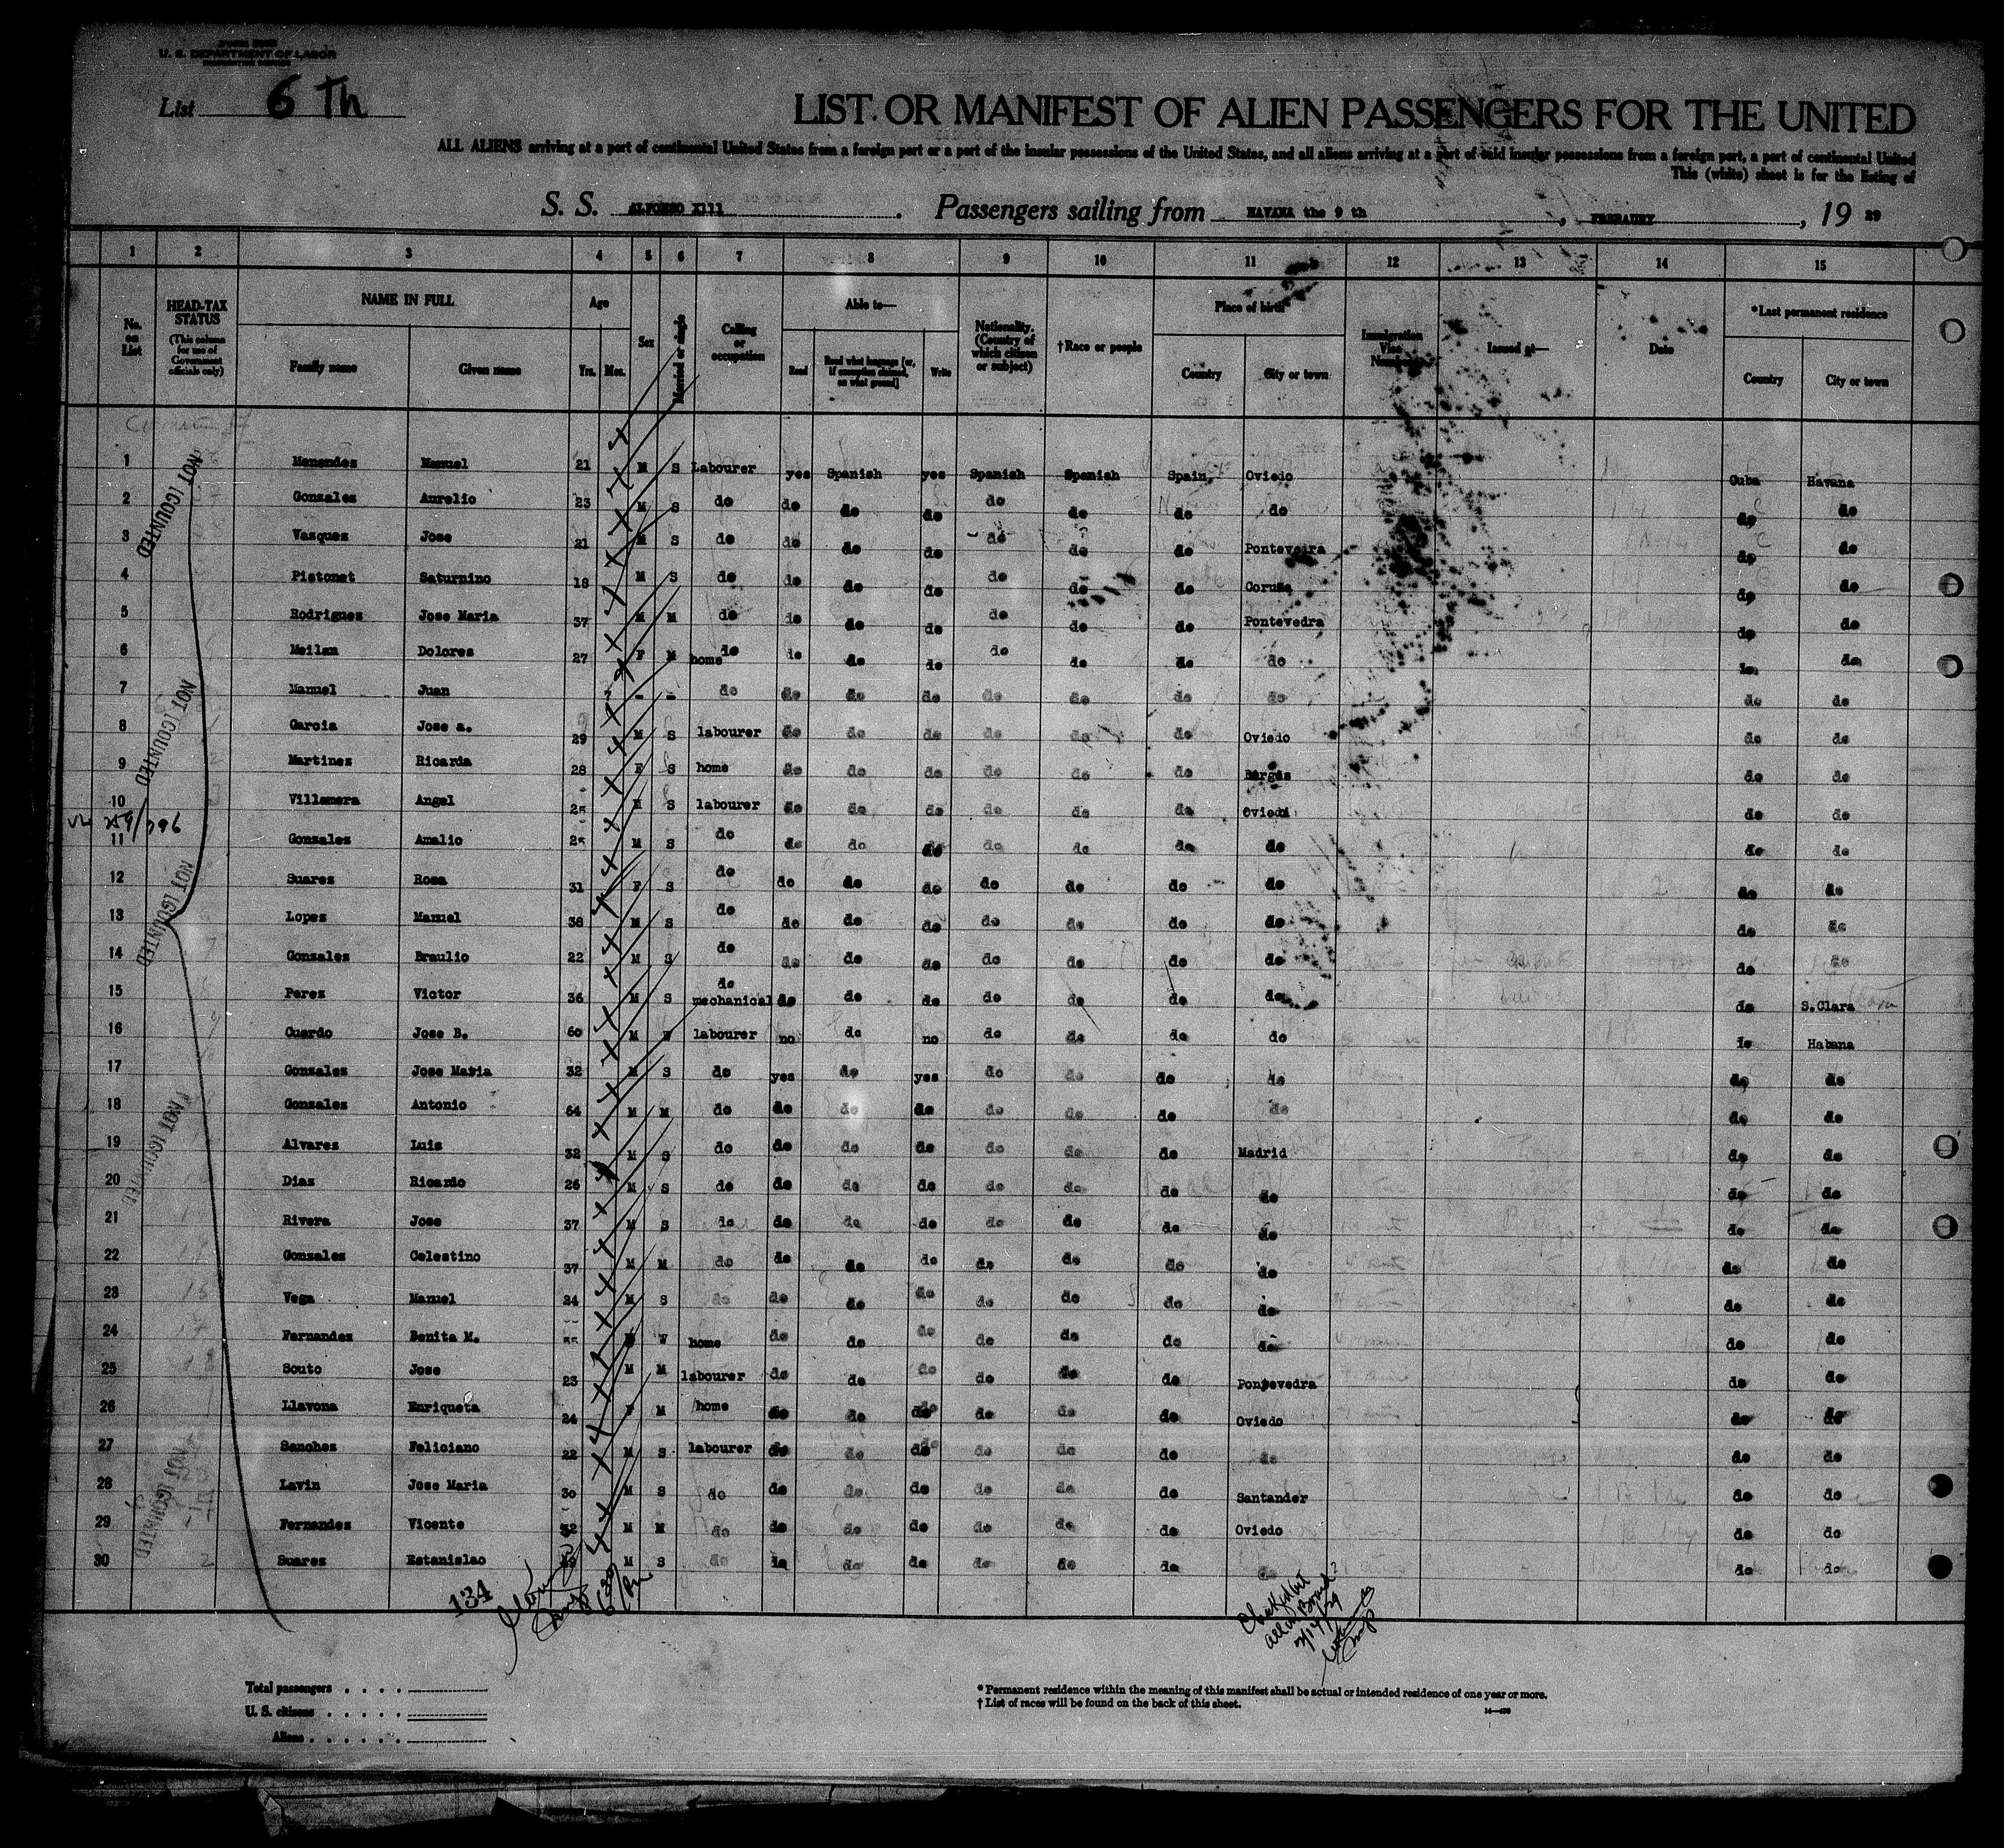 U. S. DEPARTMENT OF LABOR
List 6 Th
LIST OR MANIFEST OF ALIEN PASSENGERS FOR THE UNITED
ALL ALIENS arriving at a port of continental United States from a foreign port or a port of the insular possessions of the United States, and all aliens arriving at a port of said insular possessions from a foreign port, a port of continental United
This (white) sheet is for the listing of
S. S. ALFONSO XIII . Passengers sailing from HAVANA the 9 th , FEBRADRY , 19 29
1 2 3 4 5 6 7 8 9 10 11 12 13 14 15
No. on List
HEAD-TAX STATUS
(This column for use of Government officials only)
NAME IN FULL
Family name Given name
Age
Yrs. Mos.
Sex
Married or single
Calling or occupation
Able to—
Read Read what language [or, if exemption claimed, on what ground] Write
Nationality. (Country of which citizen or subject)
†Race or people
Place of birth
Country City or town
Immigration Visa Number
Issued at—
Date
*Last permanent residence
Country City or town
1 Menendez Manuel 21 M S Labourer yes Spanish yes Spanish Spanish Spain, Oviedo Cuba Havana
2 Gonzales Aurelio 23 M S do do do do do do do do do do
3 Vazquez Jose 21 M S do do do do do do do Ponteveira do do
4 Pistonet Saturnino 18 M S do do do do do do do Coruña do do
5 Rodriguez Jose Maria 37 M M do do do do do do do Pontevedra do do
6 Meilan Dolores 27 F M home do do do do do do do do do do
7 Manuel Juan 7 - - do do do do do do do do do do
8 Garcia Jose a. 29 M S labourer do do do do do do Oviedo do do
9 Martinez Ricarda 28 F S home do do do do do do Burgos do do
10 Villamera Angel 25 M S labourer do do do do do do Oviedo do do
11 Gonzales Amalio 25 M S do do do do do do do do do do
12 Suarez Rosa 31 F S do do do do do do do do do do
13 Lopez Manuel 38 M S do do do do do do do do do do
14 Gonzales Braulio 22 M S do do do do do do do do do do
15 Perez Victor 36 M S do mechanical do do do do do do do do S.Clara
16 Cuerdo Jose B. 60 M W labourer no do no do do do do do Habana
17 Gonzales Jose Maria 32 M S do yes do yes do do do do do do
18 Gonzales Antonio 64 M M do do do do do do do do do do
19 Alvares Luis 32 M S do do do do do do do Madrid do do
20 Dias Ricardo 26 M S do do do do do do do do do do
21 Rivera Jose 37 M S do do do do do do do do do do
22 Gonzales Celestino 37 M M do do do do do do do do do do
23 Vega Manuel 24 M S do do do do do do do do do do
24 Fernandez Benita M. 55 W home do do do do do do do do do
25 Souto Jose 23 M M labourer do do do do do do Pontevedra do do
26 Llavona Enriqueta 24 F M home do do do do do do Oviedo do do
27 Sanchez Feliciano 22 M S labourer do do do do do do do do do
28 Lavin Jose Maria 30 M S do do do do do do do Santander do do
29 Fernandez Vicente 32 M M do do do do do do do Oviedo do do
30 Suarez Estanislao M S do do do do do do do do do do
NOT COUNTED
NOT COUNTED
NOT COUNTED
NOT COUNTED
NOT COUNTED
134
Total passengers
U. S. citizens
Aliens
* Permanent residence within the meaning of this manifest shall be actual or intended residence of one year or more.
† List of races will be found on the back of this sheet.